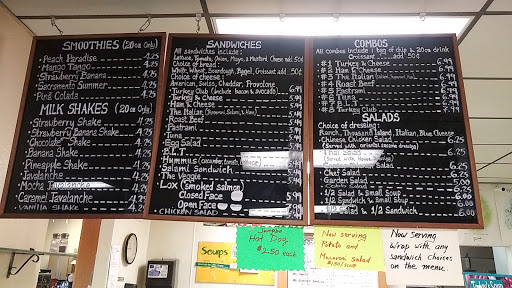 SMOOTHIES (20oz Only)
Peach Paradise 4.25
Mango Tango 4.25
Strawberry Banana 4.25
Sacramento Summer 4.25
Pina Colada 4.25
MILK SHAKES (20oz Only)
Strawberry Shake 4.25
Strawberry Banana Shake 4.25
Chocolate Shake 4.25
Banana Shake 4.25
Pineapple Shake 4.25
Javalanche 4.25
Mocha Javalanche 4.25
Caramel Javalanche 4.25
VANILLA SHAKE 4.25
SANDWICHES
All sandwiches include:
Lettuce, Tomato, Onion, Mayo, & Mustard. Cheese add .50¢
Choice of bread:
White, Wheat, Sourdough, Bagel, Croissant add .50¢
Choice of cheese:
American, Swiss, Cheddar, Provolone
Turkey Club (include bacon & avocado) 6.99
Turkey & Cheese 5.99
Ham & Cheese 5.99
The Italian 5.99
Roast Beef 5.99
Pastrami 5.99
Tuna 5.99
Egg Salad
B.L.T.
Hummus (cucumber, tomato
Salami Sandwich
The Veggie
Lox (smoked salmon)
Closed Face
Open Face
CHICKEN SALAD 5.99
COMBOS
All combos include 1 bag of chip & 20oz drink
Croissant add .50¢
#1 Turkey & Cheese
#2 Ham & Cheese
#3 The Italian
#4 Roast Beef
#5 Pastrami
#6 Tuna
#7 B.L.T.
#8 Turkey Club
SALADS
Choice of dressing:
Ranch, Thousand Island, Italian, Blue Cheese
Chinese Chicken Salad 6.25
(Served with oriental sesame dressing)
Thai Salad
(Served with House
Chef Salad 6.25
Garden Salad 5.00
1/2 Salad & Small Soup 6.00
1/2 Sandwich & Small Soup 6.00
1/2 Salad & 1/2 Sandwich 6.00
Soups
Jumbo
Hot Dog
$2.50 each
Now serving
Potato and
Macaroni Salad
Now Serving
Wrap with any
sandwich choices
on the menu.